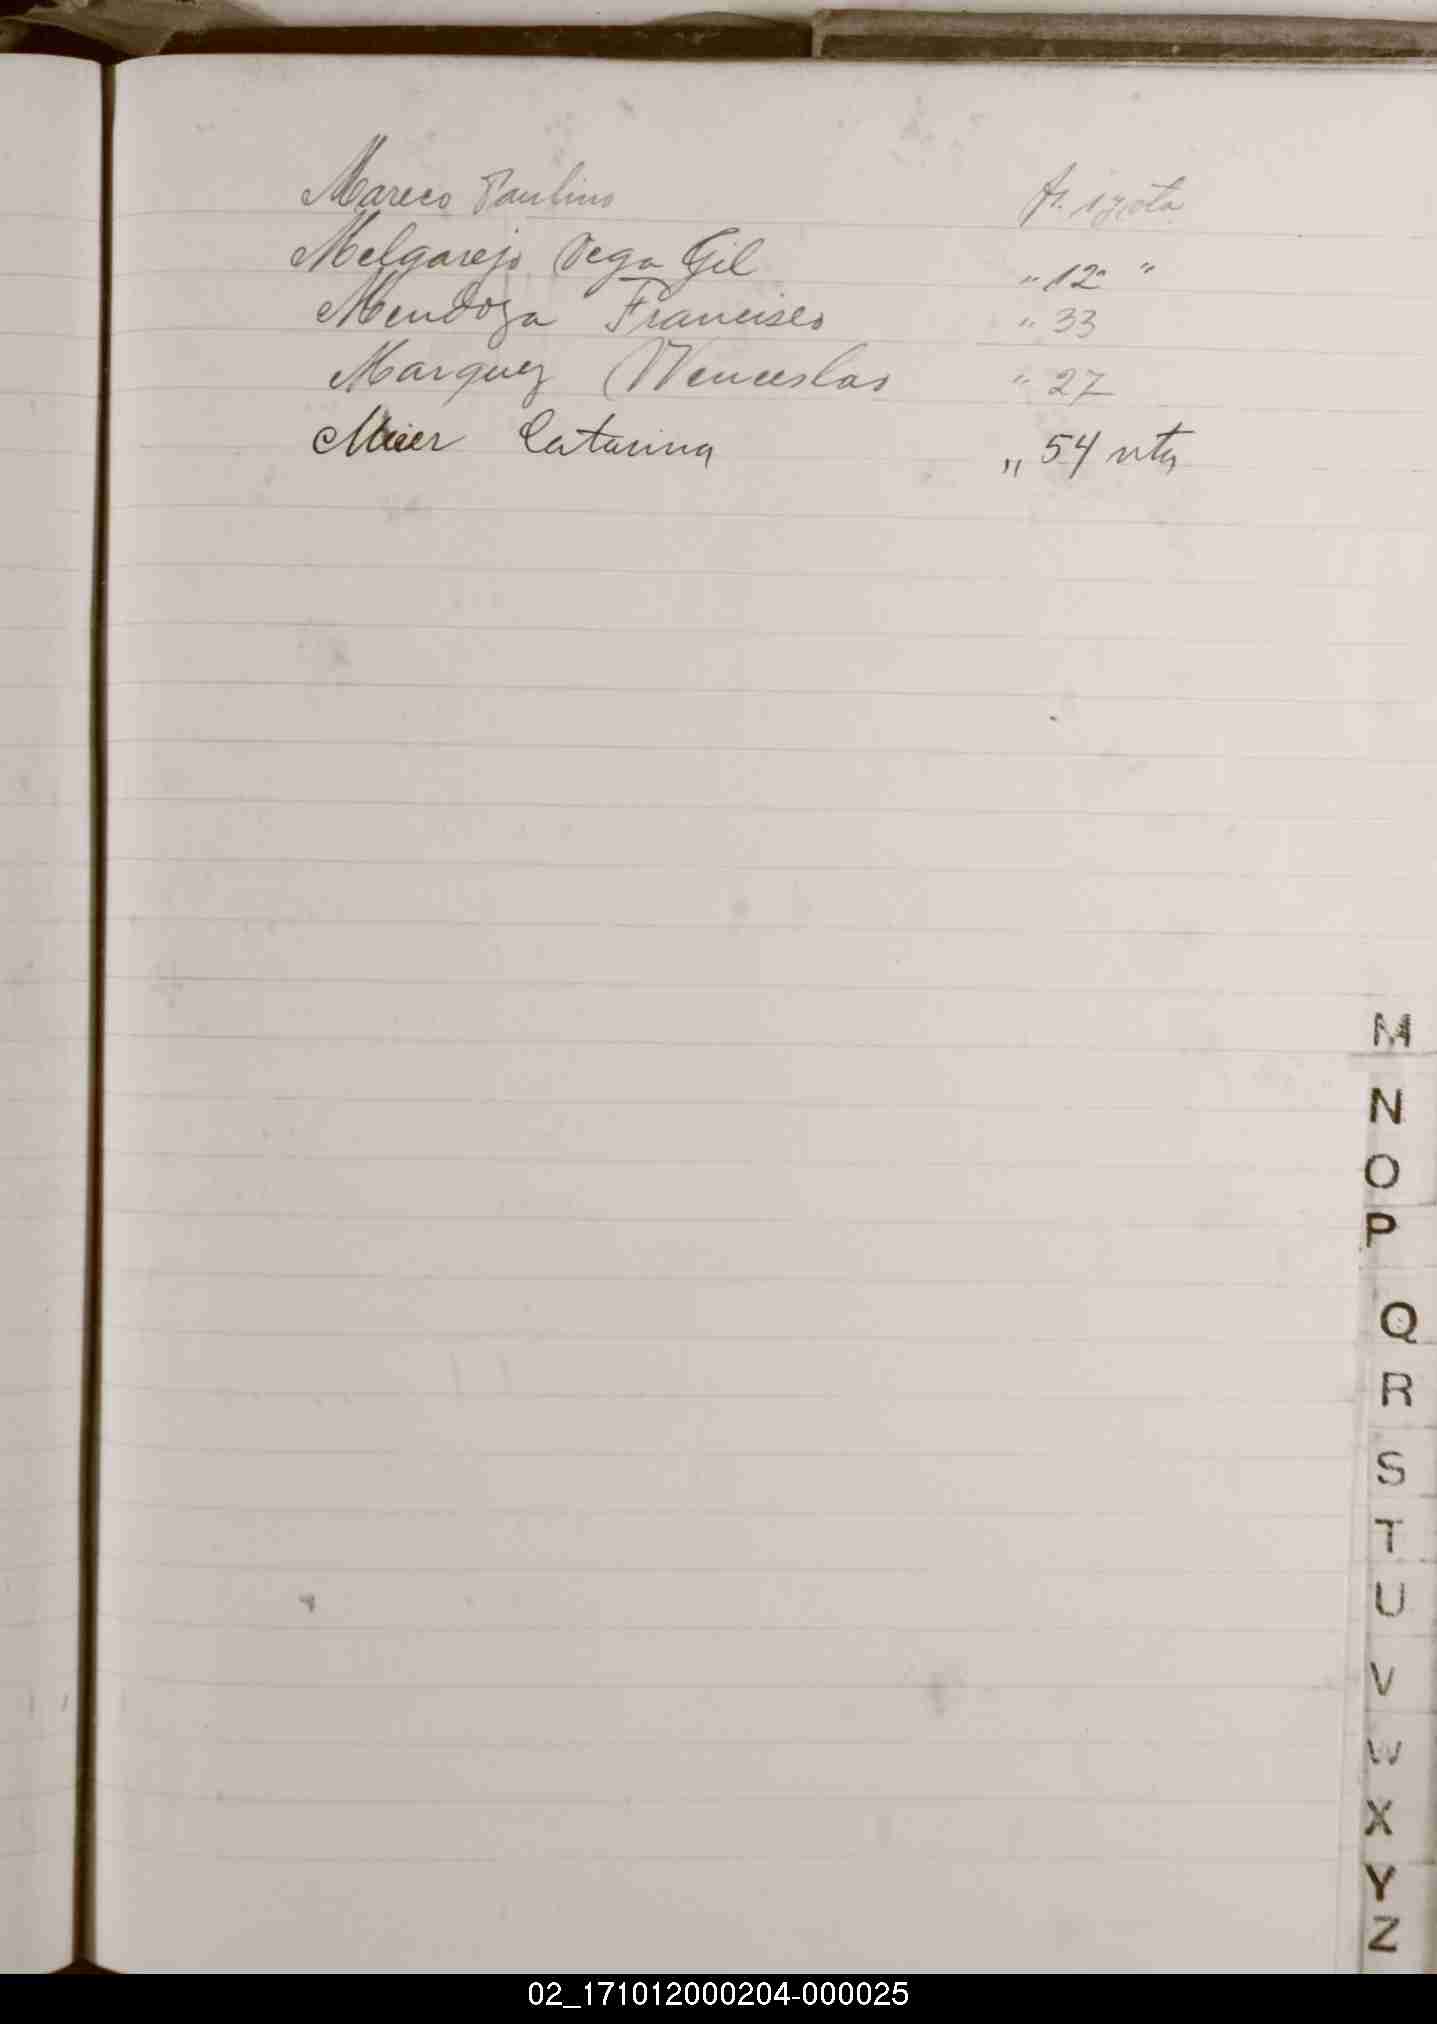 Mareco Paulino
Melgarejo Vega Gil „ 12 "
Mendoza Francisco „ 33
Marquez Wenceslao „ 27
Meier Catarina „ 54 vta
M
N
O
P
Q
R
S
T
U
V
W
X
Y
Z
02_171012000204-000025